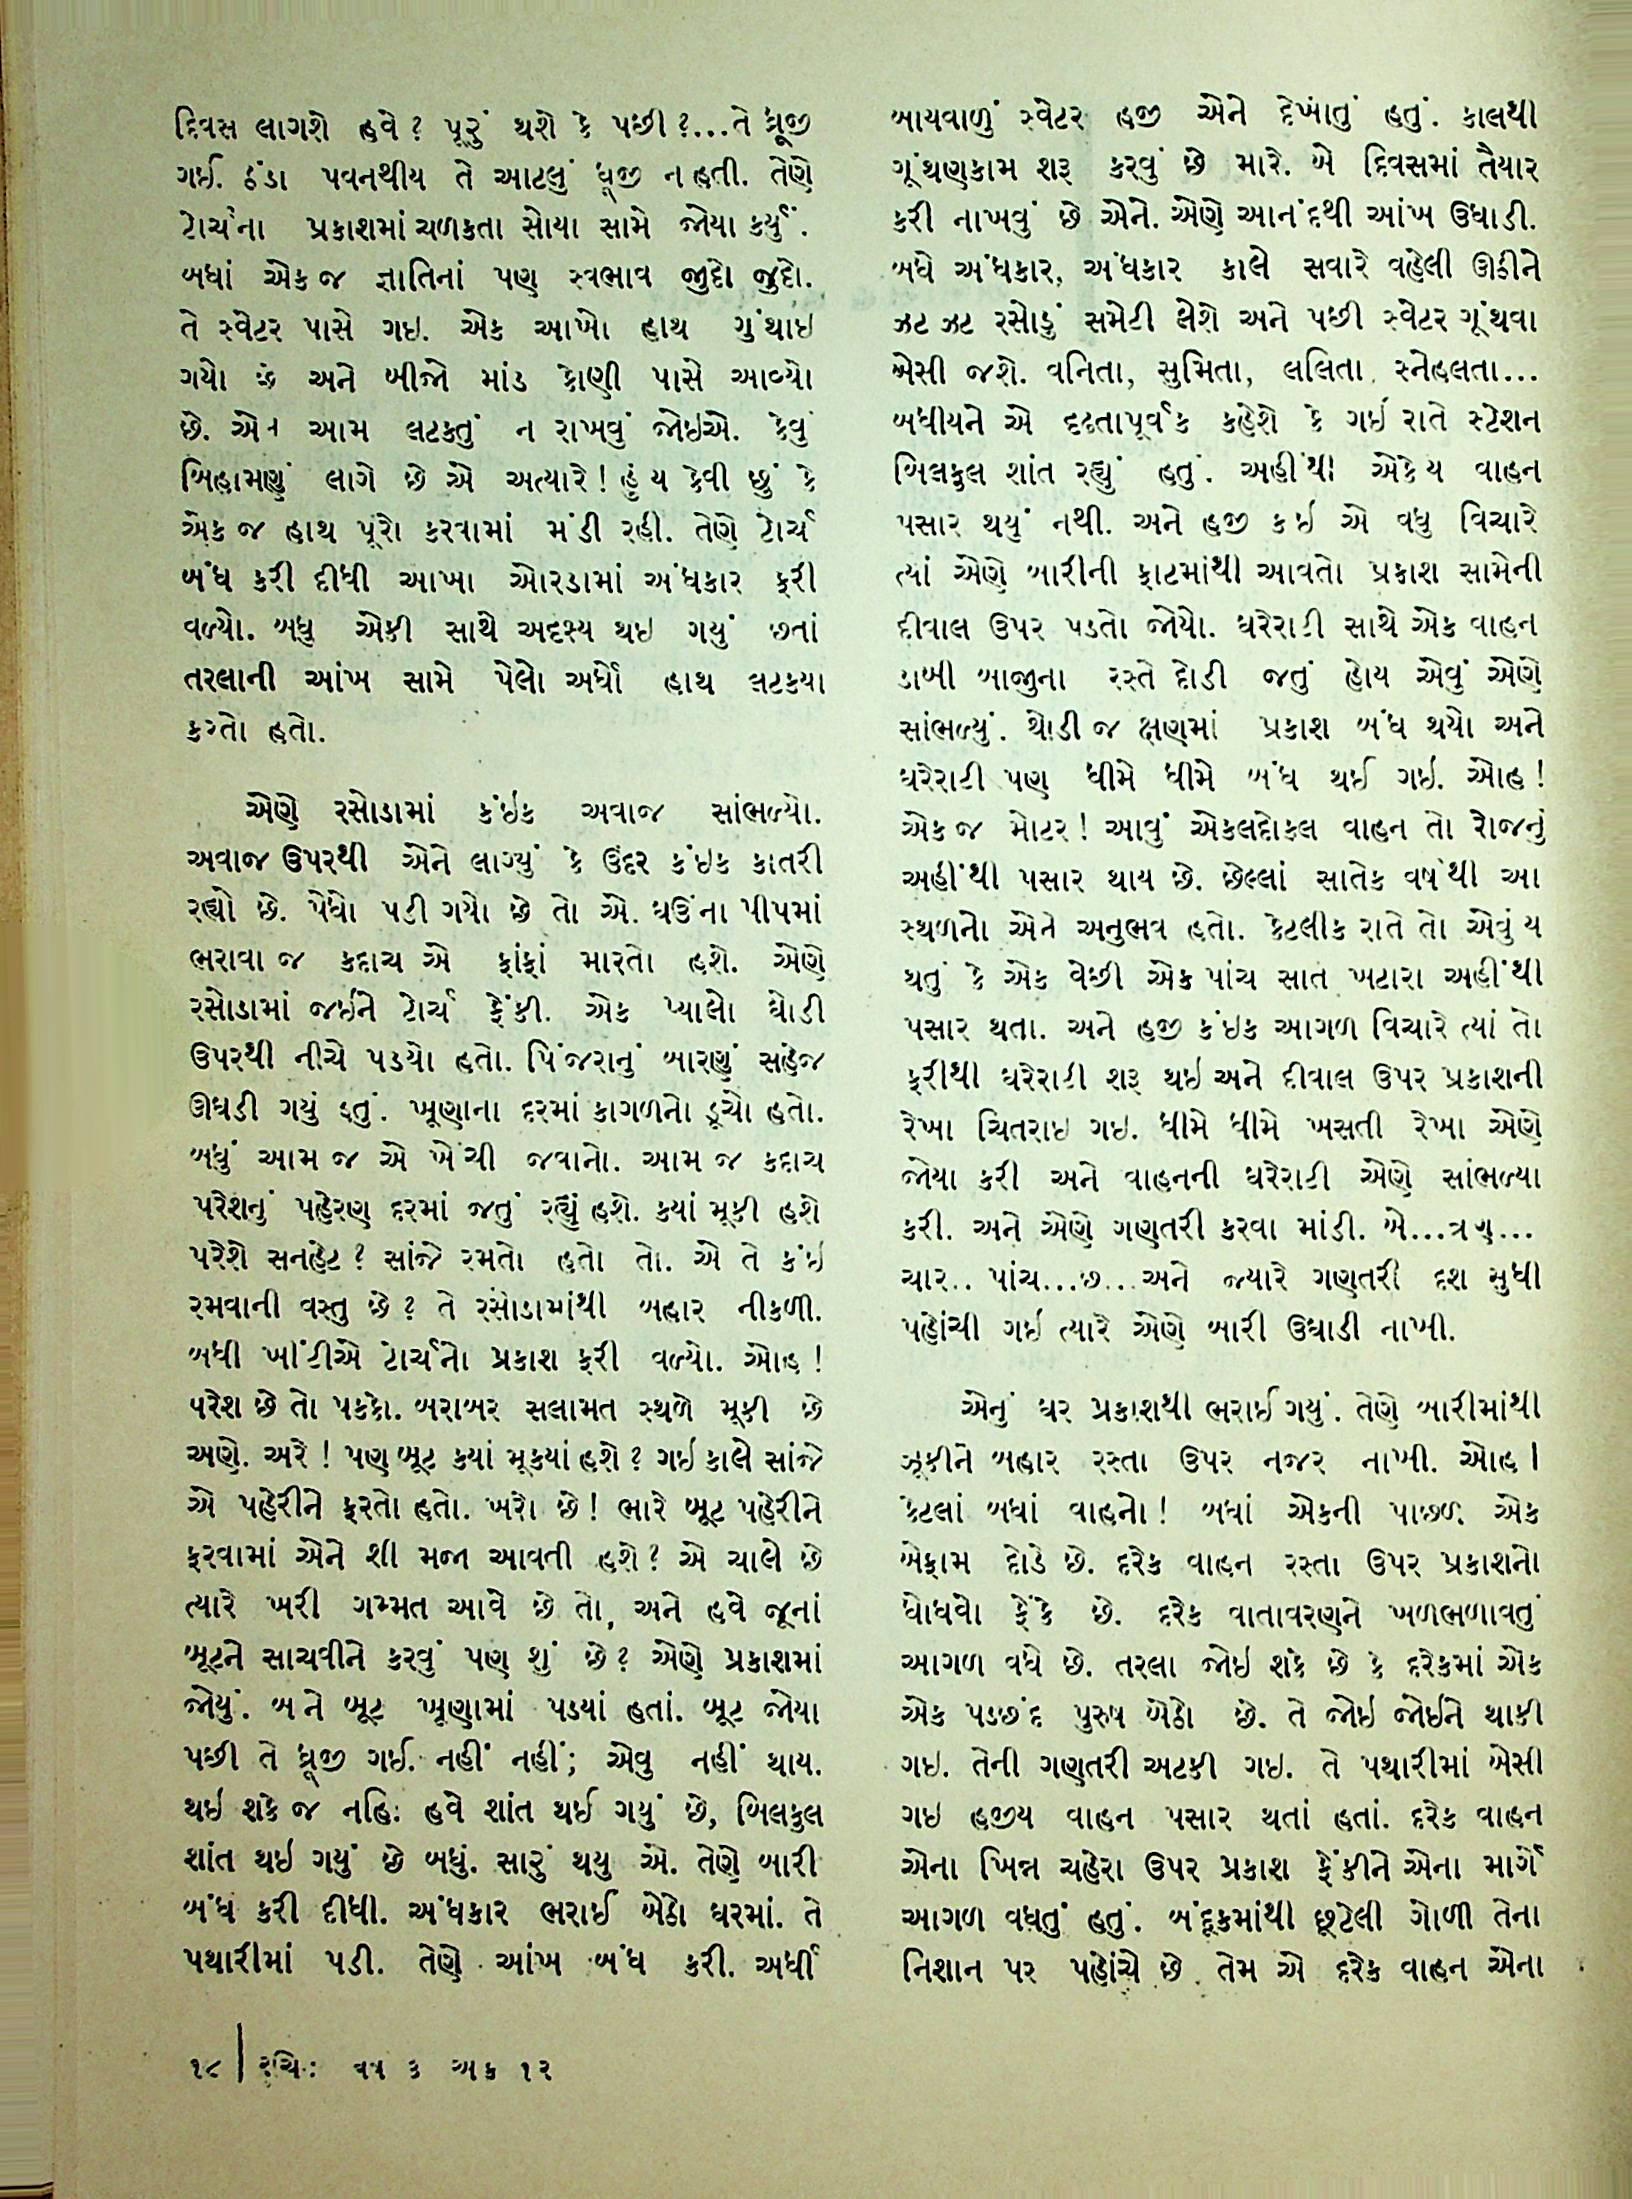 દિવસ લાગશે હવે? પૂરું થશે કે પછી?...તે ધ્રૂજી
ગઈ. ઠંડા પવનથીય તે આટલું ધ્રૂજી ન હતી. તેણે
ટોર્ચના પ્રકાશમાં ચળકતા સોયા સામે જોયા કર્યું.
બધાં એક જ જ્ઞાતિનાં પણ સ્વભાવ જુદો જુદો.
તે સ્વેટર પાસે ગઇ. એક આખો હાથ ગુંથાઇ
ગયો છે અને બીજો માંડ કોણી પાસે આવ્યો
છે. એને આમ લટકતું ન રાખવું જોઇએ. કેવું
બિહામણું લાગે છે એ અત્યારે! હું ય કેવી છું કે
એક જ હાથ પૂરો કરવામાં મંડી રહી. તેણે ટોર્ચ
બંધ કરી દીધી આખા ઓરડામાં અંધકાર ફરી
વળ્યો. બધુ એકી સાથે અદૃશ્ય થઇ ગયું છતાં
તરલાની આંખ સામે પેલો અર્ધો હાથ લટકયા
કરતો હતો.
એણે રસોડામાં કંઇક અવાજ સાંભળ્યો.
અવાજ ઉપરથી એને લાગ્યું કે ઉંદર કંઇક કાતરી
રહ્યો છે. પેધો પડી ગયો છે તો એ. ઘઉંના પીપમાં
ભરાવા જ કદાચ એ ફાંફાં મારતો હશે. એણે
રસોડામાં જઇને ટોર્ચ ફેંકી. એક પ્યાલો ઘોડી
ઉપરથી નીચે પડયો હતો. પિંજરાનું બારણું સહેજ
ઊઘડી ગયું હતું. ખૂણાના દરમાં કાગળનો ડૂચો હતો.
બધું આમ જ એ ખેંચી જવાનો. આમ જ કદાચ
પરેશનું પહેરણ દરમાં જતું રહ્યું હશે. કયાં મૂકી હશે
પરેશે સનહેટ? સાંજે રમતો હતો તો. એ તે કંઇ
રમવાની વસ્તુ છે? તે રસોડામાંથી બહાર નીકળી.
બધી ખીંટીએ ટોર્ચનો પ્રકાશ ફરી વળ્યો. ઓહ!
પરેશ છે તો પકકો. બરાબર સલામત સ્થળે મૂકી છે
અણે. અરે! પણ બૂટ કયાં મૂકયાં હશે? ગઇ કાલે સાંજે
એ પહેરીને ફરતો હતો. ખરો છે! ભારે બૂટ પહેરીને
ફરવામાં એને શી મજા આવતી હશે? એ ચાલે છે
ત્યારે ખરી ગમ્મત આવે છે તો, અને હવે જૂનાં
બૂટને સાચવીને કરવું પણ શું છે? એણે પ્રકાશમાં
જોયું. બંને બૂટ ખૂણામાં પડયાં હતાં. બૂટ જોયા
પછી તે ધ્રૂજી ગઈ. નહીં નહીં; એવુ નહીં થાય.
થઇ શકે જ નહિ: હવે શાંત થઈ ગયું છે, બિલકુલ
શાંત થઇ ગયું છે બધું. સારું થયુ એ. તેણે બારી
બંધ કરી દીધી. અંધકાર ભરાઈ બેઠો ઘરમાં. તે
પથારીમાં પડી. તેણે આંખ બંધ કરી. અર્ધી
બાયવાળું સ્વેટર હજી એને દેખાતું હતું. કાલથી
ગૂંથણકામ શરૂ કરવું છે મારે. બે દિવસમાં તૈયાર
કરી નાખવું છે એને. એણે આનંદથી આંખ ઉઘાડી.
બધે અંધકાર, અંધકાર કાલે સવારે વહેલી ઊઠીને
ઝટ ઝટ રસોડું સમેટી લેશે અને પછી સ્વેટર ગૂંથવા
બેસી જશે. વનિતા, સુમિતા, લલિતા સ્નેહલતા...
બધીયને એ દૃઢતાપૂર્વક કહેશે કે ગઈ રાતે સ્ટેશન
બિલકુલ શાંત રહ્યું હતું. અહીંથી એકેય વાહન
પસાર થયું નથી. અને હજી કઇ એ વધુ વિચારે
ત્યાં એણે બારીની ફાટમાંથી આવતો પ્રકાશ સામેની
દીવાલ ઉપર પડતો જોયો. ઘરેરાટી સાથે એક વાહન
ડાબી બાજુના રસ્તે દોડી જતું હોય એવું એણે
સાંભળ્યું. થોડી જ ક્ષણમાં પ્રકાશ બંધ થયો અને
ઘરેરાટી પણ ધીમે ધીમે બંધ થઈ ગઇ. ઓહ!
એક જ મોટર! આવું એકલદોકલ વાહન તો રોજનું
અહીંથી પસાર થાય છે. છેલ્લાં સાતેક વર્ષથી આ
સ્થળનો એને અનુભવ હતો. કેટલીક રાતે તો એવું ય
થતું કે એક વેછી એક પાંચ સાત ખટારા અહીંથી
પસાર થતા. અને હજી કંઇક આગળ વિચારે ત્યાં તો
ફરીથી ઘરેરાટી શરૂ થઇ અને દીવાલ ઉપર પ્રકાશની
રેખા ચિતરાઇ ગઇ. ધીમે ધીમે ખસતી રેખા એણે
જોયા કરી અને વાહનની ઘરેરાટી એણે સાંભળ્યા
કરી. અને એણે ગણતરી કરવા માંડી. બે...ત્રણ...
ચાર.. પાંચ...છ...અને જ્યારે ગણતરી દશ સુધી
પહોંચી ગઇ ત્યારે એણે બારી ઉઘાડી નાખી.
એનું ઘર પ્રકાશથી ભરાઈ ગયું. તેણે બારીમાંથી
ઝૂકીને બહાર રસ્તા ઉપર નજર નાખી. ઓહ!
કેટલાં બધાં વાહનો! બધાં એકની પાછળ એક
બેફામ દોડે છે. દરેક વાહન રસ્તા ઉપર પ્રકાશનો
ધોધવો ફેંકે છે. દરેક વાતાવરણને ખળભળાવતું
આગળ વધે છે. તરલા જોઇ શકે છે કે દરેકમાં એક
એક પડછંદ પુરુષ બેઠો છે. તે જોઇ જોઇને થાકી
ગઇ. તેની ગણતરી અટકી ગઇ. તે પથારીમાં બેસી
ગઇ હજીય વાહન પસાર થતાં હતાં. દરેક વાહન
એના ખિન્ન ચહેરા ઉપર પ્રકાશ ફેંકીને એના માર્ગે
આગળ વધતું હતું. બંદૂકમાંથી છૂટેલી ગોળી તેના
નિશાન પર પહોંચે છે તેમ એ દરેક વાહન એના
૧૮ | રુચિ: અંક ૧૨